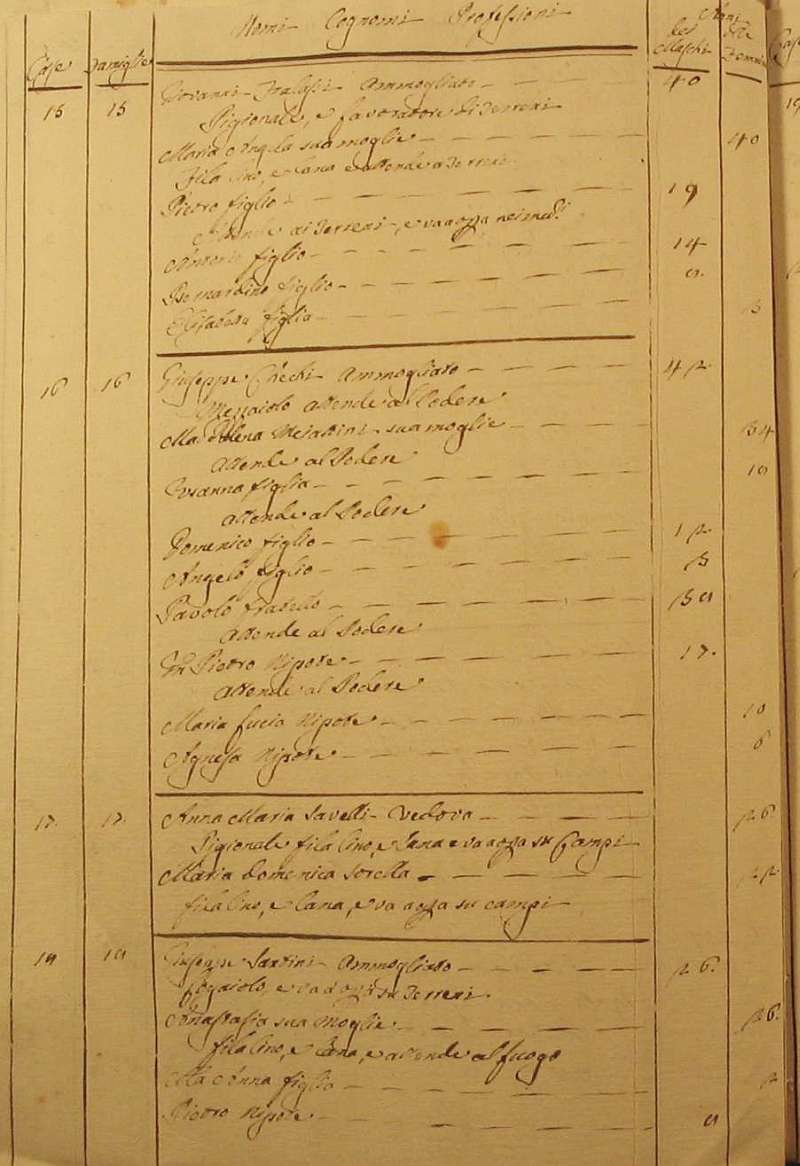 Nomi Cognomi Professioni
Anni
Case Famiglie dei Maschi delle Femmine
15 15 Giovanni Ammogliato 40
Pigionale, e lavoratore di Terreni
Maria Angela sua moglie 40
Fila lino, e lana e attende a Terreni
Pietro figlio 19
ai Terreni, e va a opra
Antonio figlio 14
Bernardino figlio
Elisabetta figlia
16 16 Giuseppe Checchi Ammogliato 42
Mezzaiolo attende al Podere
sua moglie 34
Attende al Podere
Susanna figlia
attende al Podere
Domenico figlio 12
Angelo figlio
Pavolo fratello
attende al Podere
Pietro Nipote 17
attende al Podere
Maria Lucia Nipote 10
Agnesa Nipote 6
17 17 Anna Maria Savelli Vedova 26
Pigionale fila lino, e lana e va a opra su Campi
Maria Domenica sorella 22
fila lino, e lana, e va a opra su campi
18 18 Giuseppe Sartini Ammogliato 26
e va a opra su Terreni
Anastasia sua moglie 26
fila lino, e lana, e attende al fuogo
Ma Anna figlia 2
Pietro Nipote